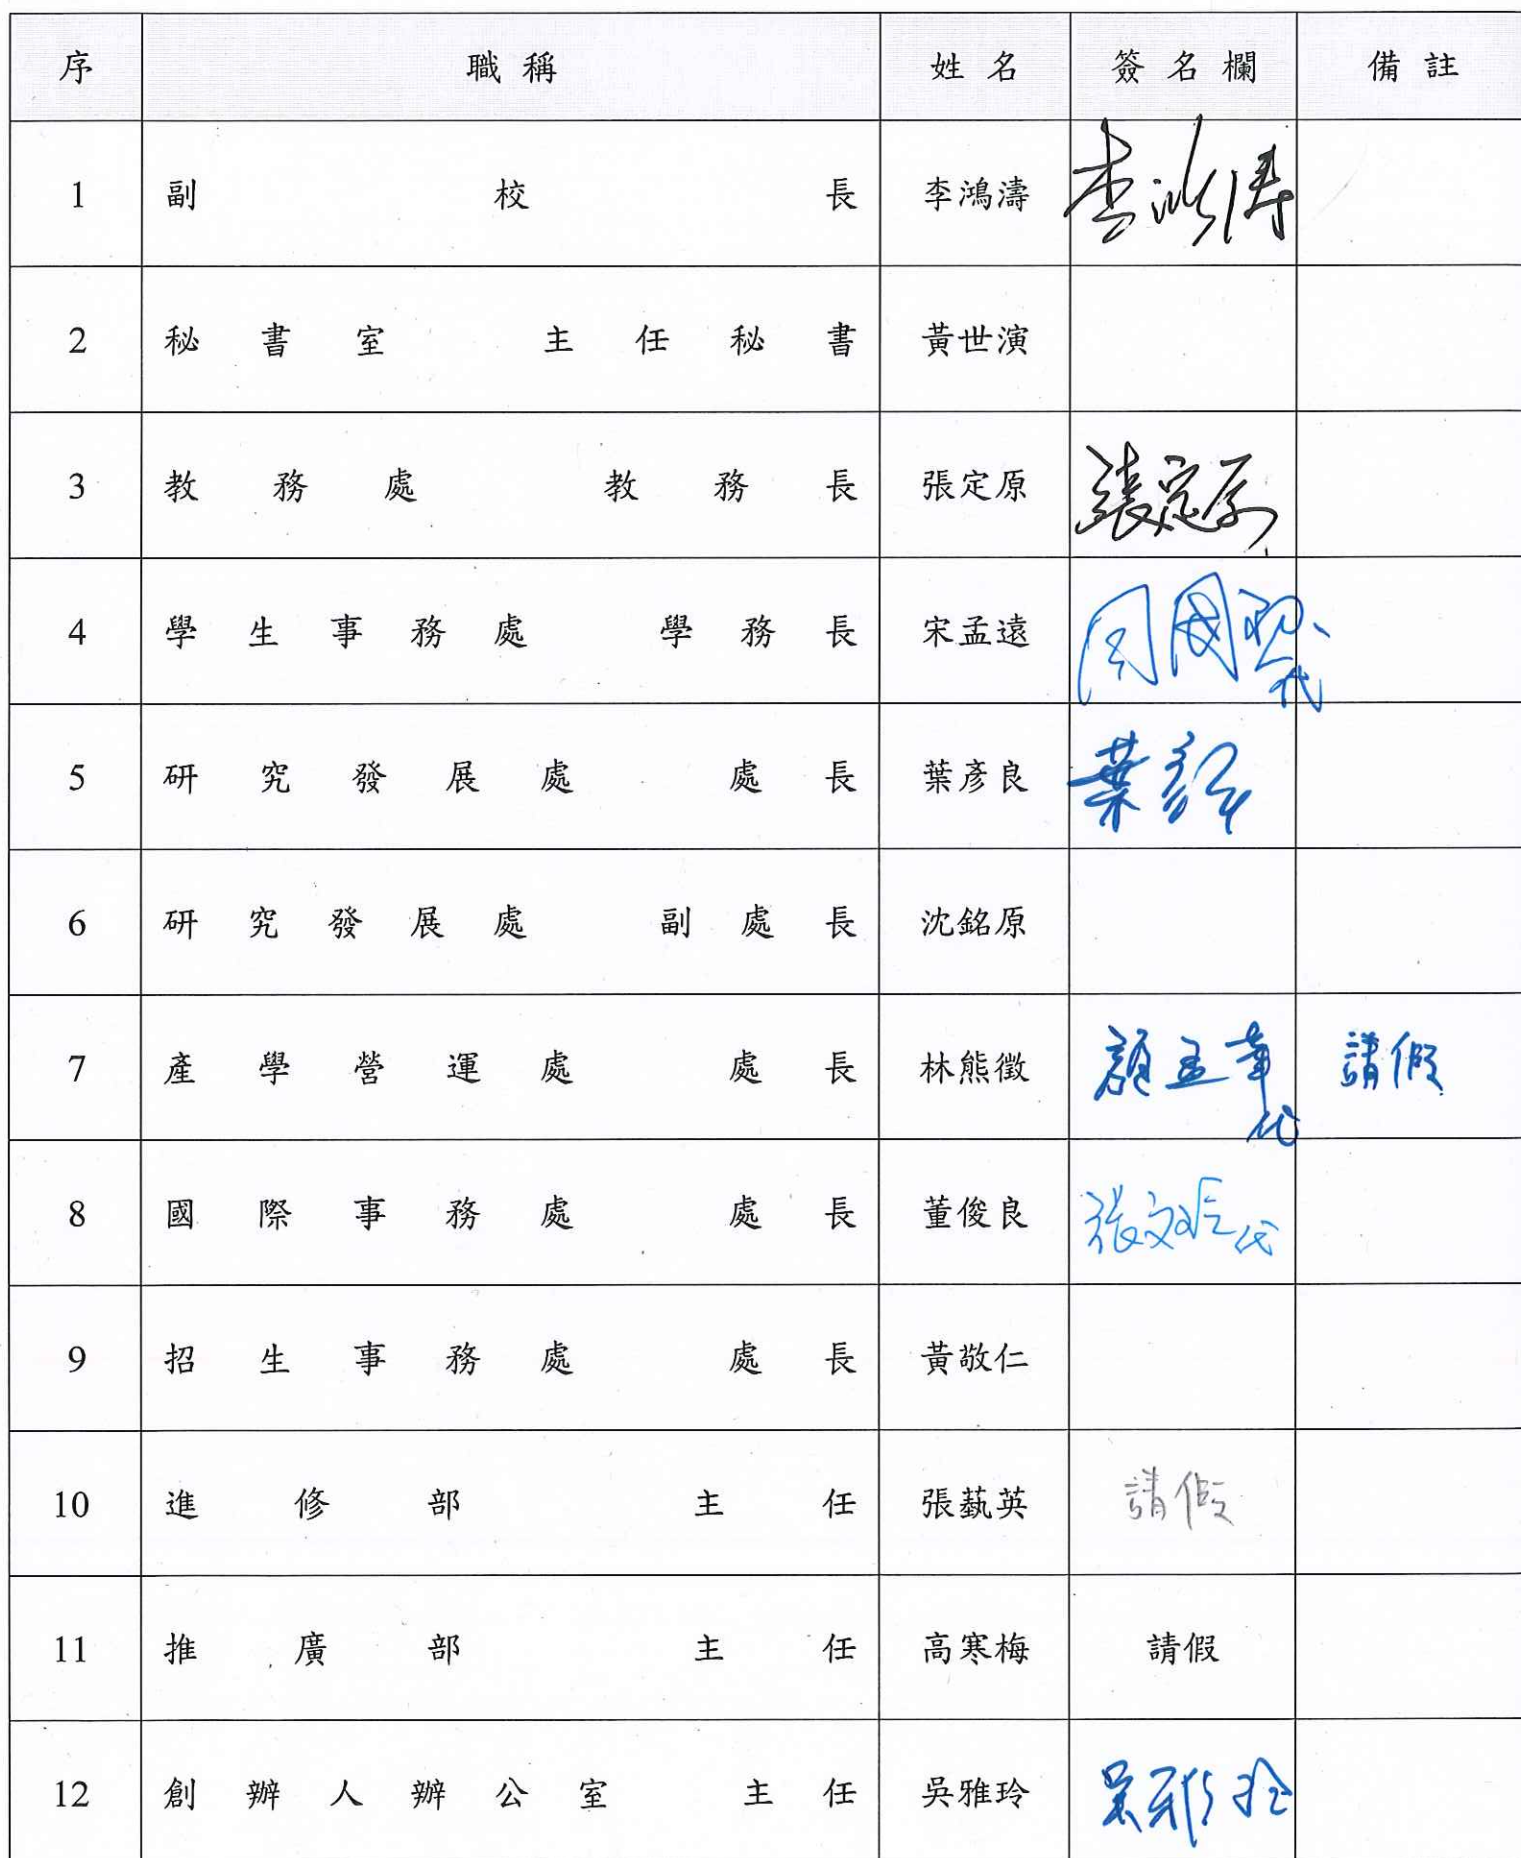 序 職稱 姓名 簽名欄 備註
1 副校長 李鴻濤 李鴻濤
2 秘書室 主任秘書 黃世演
3 教務處 教務長 張定原 張定原
4 學生事務處 學務長 宋孟遠 周國 代
5 研究發展處 處長 葉彥良 葉彥良
6 研究發展處 副處長 沈銘原
7 產學營運處 處長 林熊徵 顏孟華 代 請假
8 國際事務處 處長 董俊良 張文 代
9 招生事務處 處長 黃敬仁
10 進修部 主任 張蓺英 請假
11 推廣部 主任 高寒梅 請假
12 創辦人辦公室 主任 吳雅玲 吳雅玲